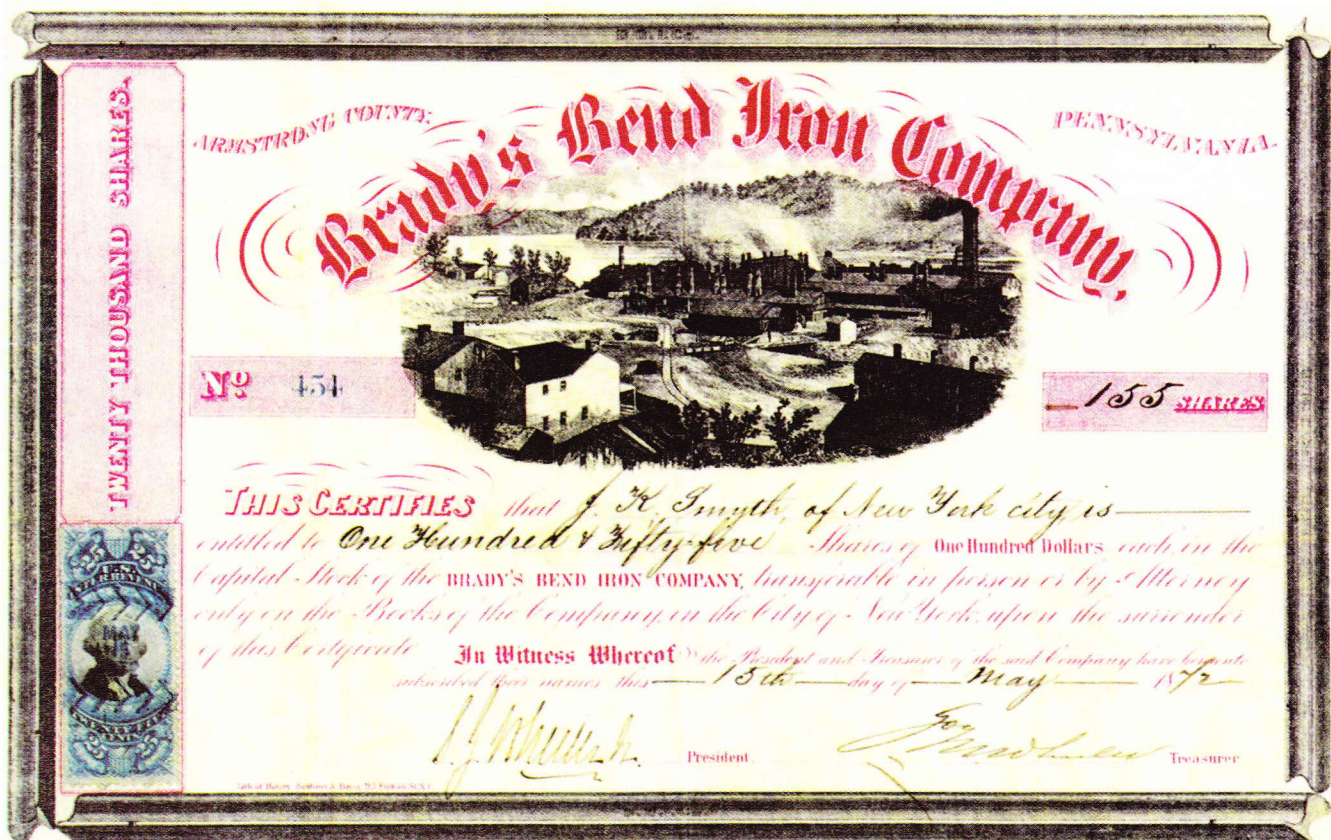 ARMSTRONG COUNTY,
PENNSYLVANIA.
Brady's Bend Iron Company,
TWENTY THOUSAND SHARES.
No 454
155 SHARES
THIS CERTIFIES that J. K. Smyth, of New York city is
entitled to One Hundred & Fifty-five Shares of One Hundred Dollars each, in the
Capital Stock of the BRADY'S BEND IRON COMPANY, transferable in person or by Attorney
only on the Books of the Company, in the City of New York, upon the surrender
of this Certificate.
In Witness Whereof the President and Treasurer of the said Company have hereunto
subscribed their names this 15th day of May 1872
President.
Treasurer
MAY
25
25
25
25